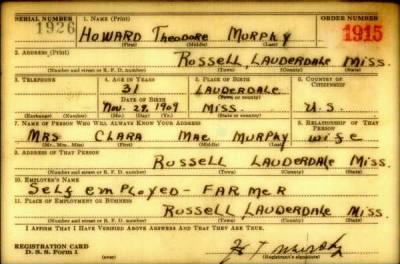 SERIAL NUMBER 1. NAME (Print) ORDER NUMBER
1926 HOWARD Theodore MURPHY 1915
(First) (Middle) (Last)
2. ADDRESS (Print)
Russell, LAUDERDALE Miss.
(Number and street or R. F. D. number) (Town) (County) (State)
3. TELEPHONE 4. AGE IN YEARS 5. PLACE OF BIRTH 6. COUNTRY OF CITIZENSHIP
31 LAUDERDALE
DATE OF BIRTH (Town or county)
Nov. 28, 1909 Miss. U.S.
(Exchange) (Number) (Mo.) (Day) (Yr.) (State or country)
7. NAME OF PERSON WHO WILL ALWAYS KNOW YOUR ADDRESS 8. RELATIONSHIP OF THAT PERSON
MRS CLARA MAE MURPHY wife
(Mr., Mrs., Miss) (First) (Middle) (Last)
9. ADDRESS OF THAT PERSON
Russell LAUDERDALE Miss.
(Number and street or R. F. D. number) (Town) (County) (State)
10. EMPLOYER'S NAME
Self employed - FARMER
11. PLACE OF EMPLOYMENT OR BUSINESS
Russell LAUDERDALE Miss.
(Number and street or R. F. D. number) (Town) (County) (State)
I AFFIRM THAT I HAVE VERIFIED ABOVE ANSWERS AND THAT THEY ARE TRUE.
REGISTRATION CARD
D. S. S. Form 1 (Registrant's signature)